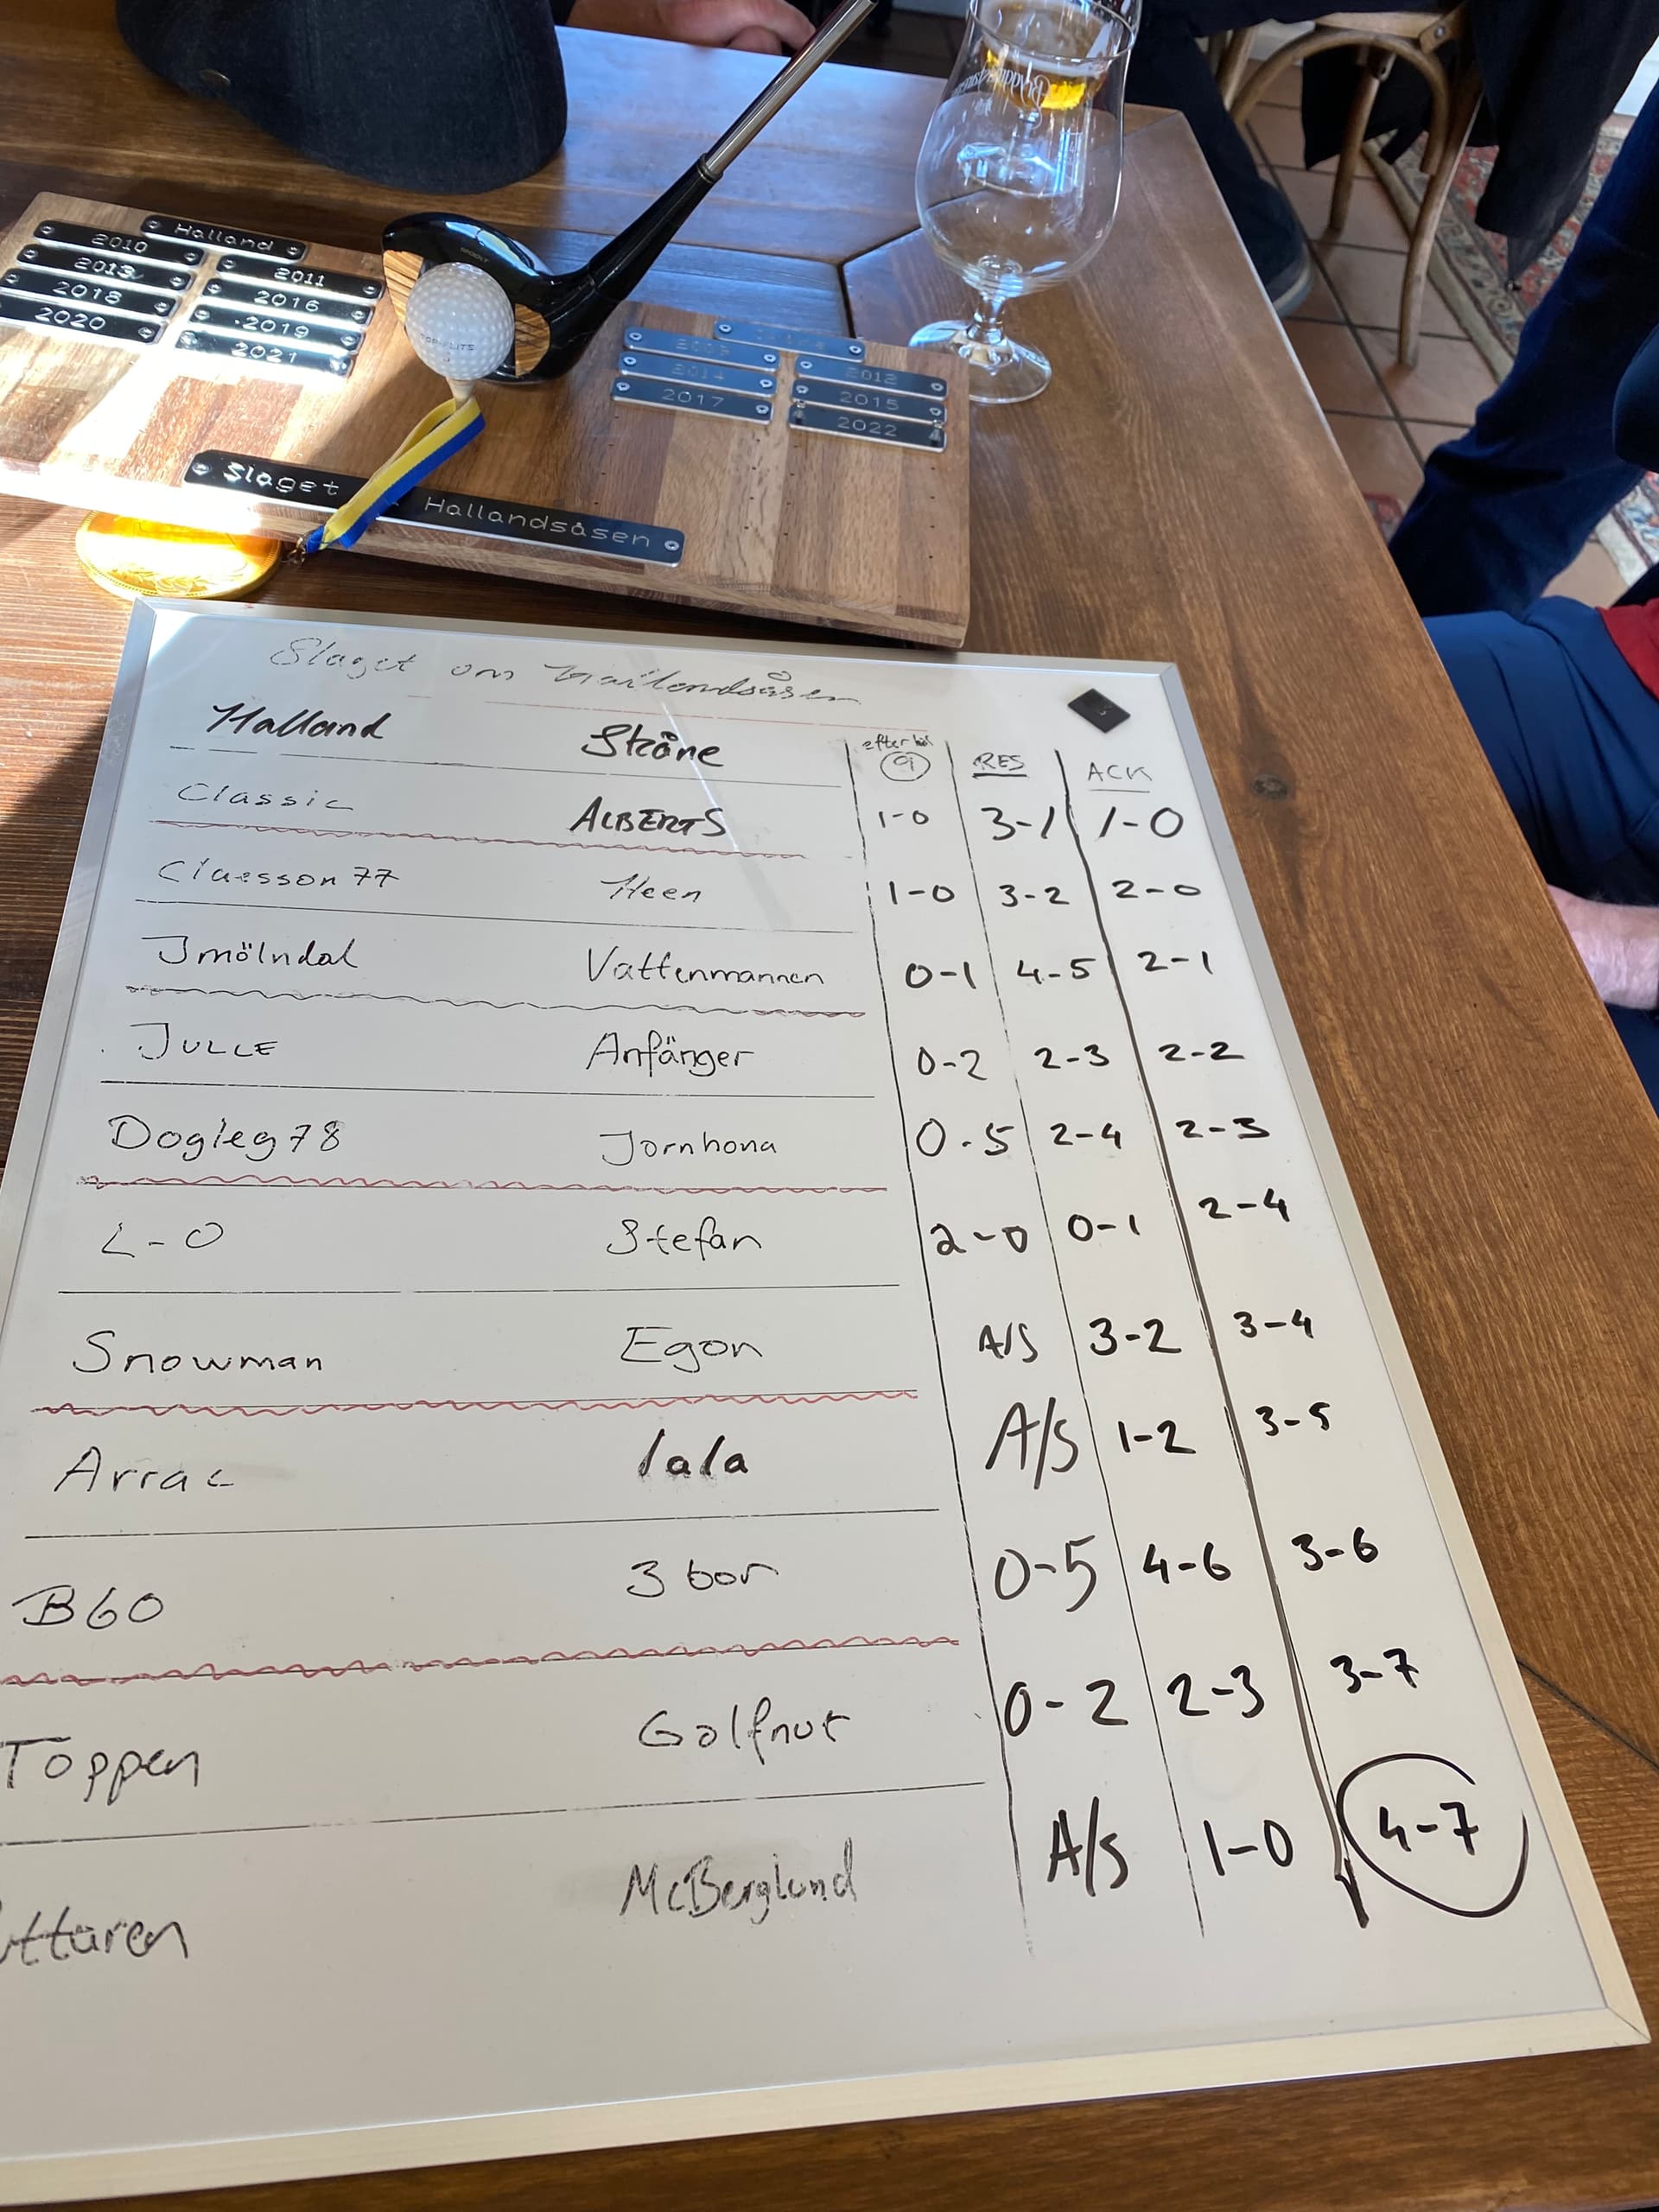 Halland
2010
2011
2013
2016
2018
2019
2020
2021
2012
2014
2015
2017
2022
Slaget Hallandsåsen
Slaget om Hallandsåsen
Halland Skåne efter hål 9 RES ACK
Classic ALBERTS 1-0 3-1 1-0
Claesson77 Heen 1-0 3-2 2-0
Jmölndal Vattenmannen 0-1 4-5 2-1
JULLE Anfänger 0-2 2-3 2-2
Dogleg78 Jornhona 0-5 2-4 2-3
L-O Stefan 2-0 0-1 2-4
Snowman Egon A/S 3-2 3-4
Arrac lala A/S 1-2 3-5
B60 3bor 0-5 4-6 3-6
Toppen Golfnut 0-2 2-3 3-7
ttüren McBerglund A/S 1-0 4-7